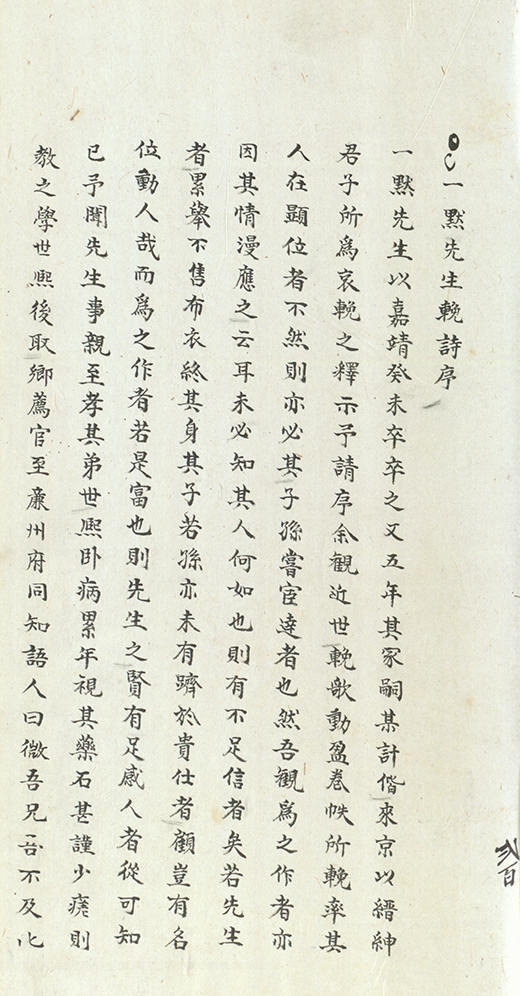 一默先生輓詩序
一默先生以嘉靖癸未卒卒之又五年其冢嗣某計偕來京以縉紳
君子所爲哀輓之釋示予請序余觀近世輓歌動盈卷帙所輓率其
人在顯位者不然則亦必其子孫嘗宦達者也然吾觀爲之作者亦
因其情漫應之云耳未必知其人何如也則有不足信者矣若先生
者累舉不售布衣終其身其子若孫亦未有躋於貴仕者顧豈有名
位動人哉而爲之作者若是富也則先生之賢有足感人者從可知
已予聞先生事親至孝其弟世熈卧病累年視其藥石甚謹少瘥則
教之學世熈後取鄉薦官至廉州府同知語人曰微吾兄吾不及此
弍百